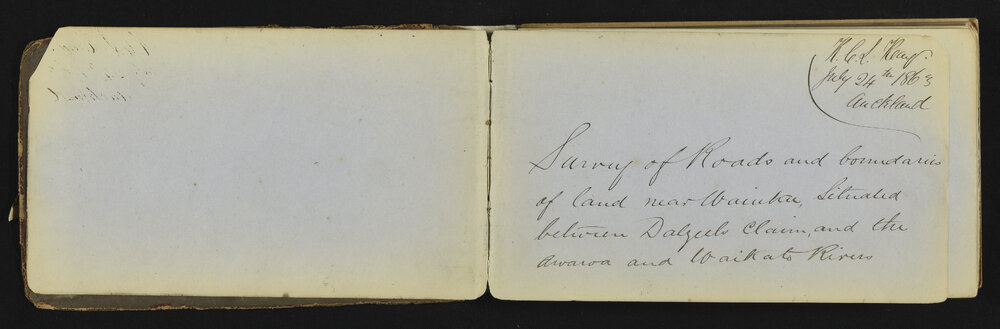 H.C.L. Heay.
July 24th 1863
Auckland
Survey of Roads and boundaries
of land near Waiuku, Situated
between Dalziels Claim, and the
Awaroa and Waikato Rivers